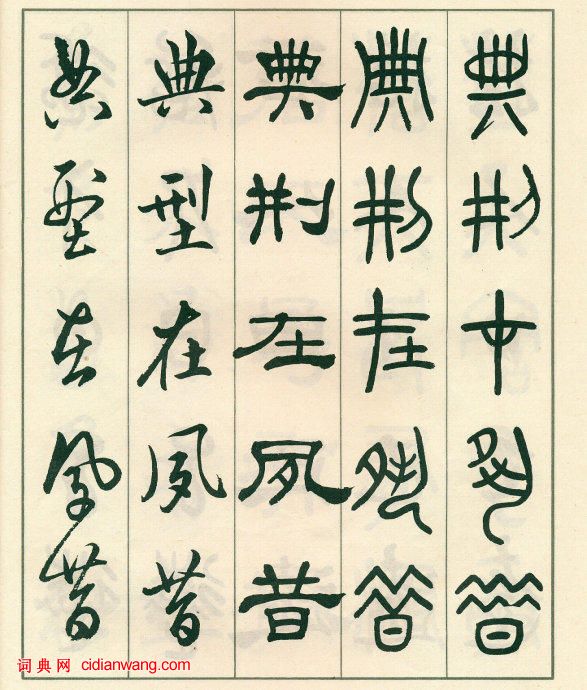 典刑在夙昔
典刑在夙昔
典刑在夙昔
典型在夙昔
典型在夙昔
词典网 cidianwang.com